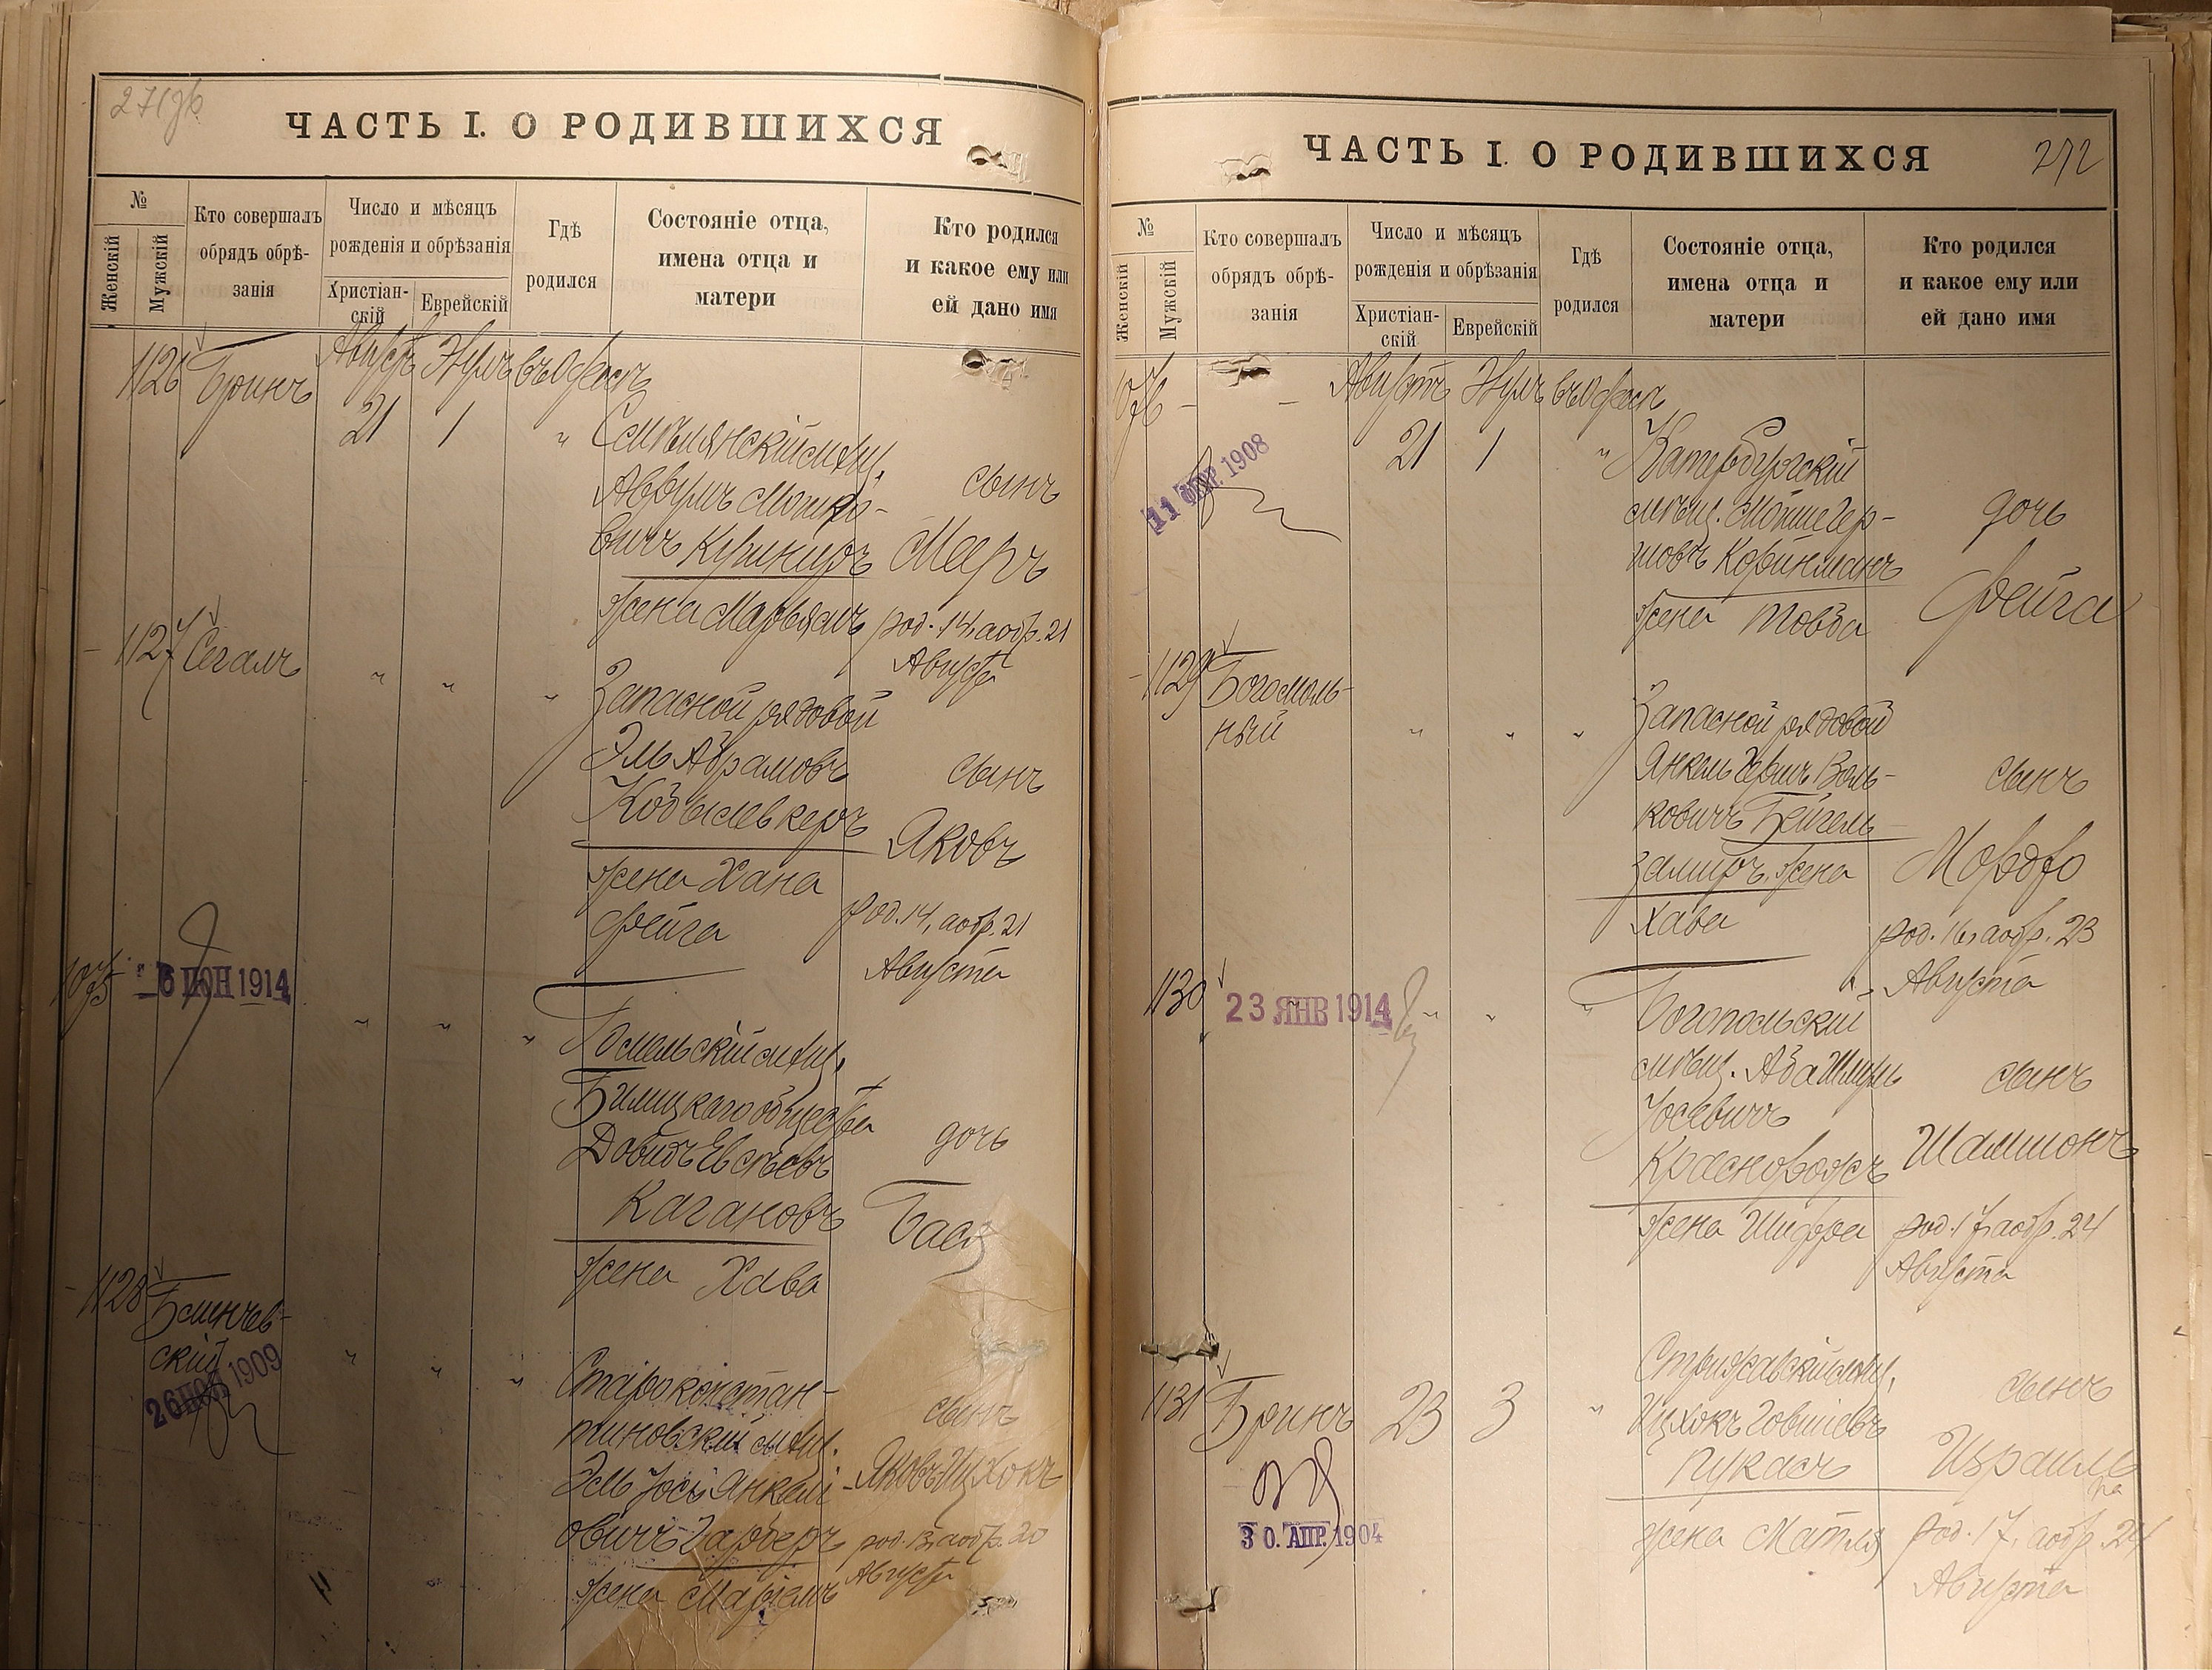 271 об
ЧАСТЬ I. О РОДИВШИХСЯ
№
Женскій
Мужскій
Кто совершалъ
обрядъ обрѣ-
занія
Число и мѣсяцъ
рожденія и обрѣзанія
Христіан-
скій
Еврейскій
Гдѣ
родился
Состояніе отца,
имена отца и
матери
Кто родился
и какое ему или
ей дано имя
1126 Бринъ
Августъ Элулъ въ Одессѣ
21 1 "
Смѣлянскій мѣщ.
Аврумъ Мошко-
вичъ Кушниръ
жена Марьямъ
сынъ
Меръ
род. 14, а обр. 21
Августа
1127 Сегалъ " " "
Запасной рядовой
Эль Абрамовъ
жена Хана
Фейга
сынъ
Яковъ
род. 14, а обр. 21
Августа
1075
6 ІЮН 1914
" " "
Гомельскій мѣщ.
Бѣлицкаго общества
Довидъ Евсѣевъ
Кагановъ
жена Хава
дочь
Бася
1128 Блинчев-
скій
26 1909
" " "
Староконстан-
тиновскій мѣщ.
Эль Іось Янкел
овичъ Гарберъ
жена Маріемъ
сынъ
Яковъ Ицхокъ
род. 13, а обр. 20
Августа
ЧАСТЬ I. О РОДИВШИХСЯ
272
№
Женскій
Мужскій
Кто совершалъ
обрядъ обрѣ-
занія
Число и мѣсяцъ
рожденія и обрѣзанія
Христіан-
скій
Еврейскій
Гдѣ
родился
Состояніе отца,
имена отца и
матери
Кто родился
и какое ему или
ей дано имя
1076 - -
Августъ Элулъ въ Одессѣ
21 1 "
11 1908
Катербургскій
мѣщ. Мошке Гер-
шовъ Корйнманъ
жена Товба
дочь
Фейга
1129 Богомоль-
ный
" " "
Запасной рядовой
Янкель Воль-
ковичъ Бейгель-
жена
Хава
сынъ
Мордко
род. 16, а обр. 23
Августа
1130
23 ЯНВ 1914
" " "
Богопольскій
мѣщ. Аба Шмуль
Іосевичъ
жена Шифра
сынъ
Шамшонъ
род. 17, а обр. 24
Августа
1131 Бринъ
23 3 "
30. АПР. 1904
Стрижавскій мѣщ.
Ицхокъ Говшіевъ
Пукасъ
жена Матля
сынъ
Израиль
род. 17, а обр. 24
Августа